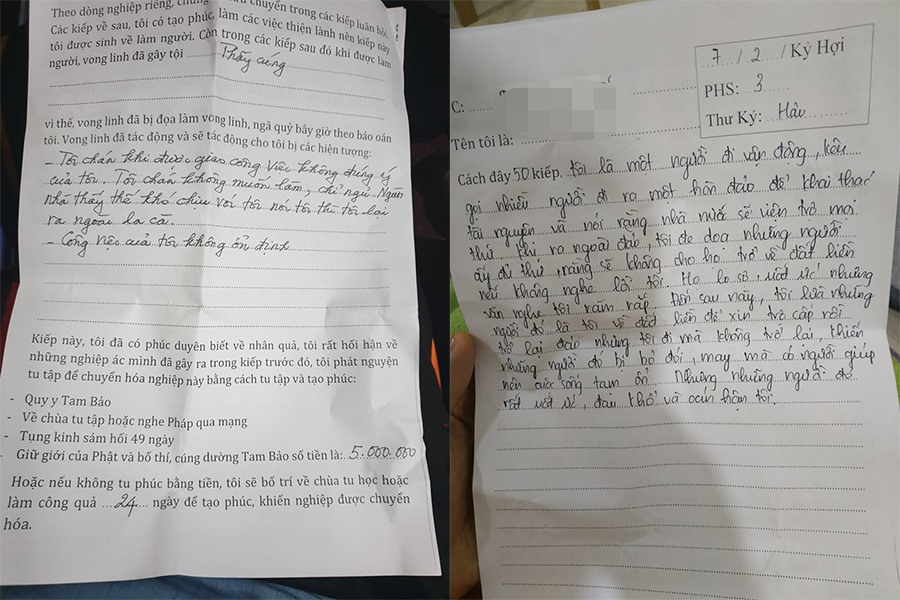 Theo dòng nghiệp riêng, chúng chuyển trong các kiếp luân hồi.
Các kiếp về sau, tôi có tạo phúc, làm các việc thiện lành nên kiếp này
tôi được sinh về làm người. Còn trong các kiếp sau đó khi được làm
người, vong linh đã gây tội Phẫy cung
vì thế, vong linh đã bị đọa làm vong linh, ngã quỷ bây giờ theo báo oán
tôi. Vong linh đã tác động và sẽ tác động cho tôi bị các hiện tượng:
- Tôi chán khi được giao công việc không đúng ý
của tôi. Tôi chán không muốn làm, chỉ ngủ. Người
nhà thấy thế khó chịu với tôi nói tôi thì tôi lại
ra ngoài la cà.
- Công việc của tôi không ổn định
Kiếp này, tôi đã có phúc duyên biết về nhân quả, tôi rất hối hận về
những nghiệp ác mình đã gây ra trong kiếp trước đó, tôi phát nguyện
tu tập để chuyển hóa nghiệp này bằng cách tu tập và tạo phúc:
- Quy y Tam Bảo
- Về chùa tu tập hoặc nghe Pháp qua mạng
- Tụng kinh sám hối 49 ngày
- Giữ giới của Phật và bố thí, cúng dường Tam Bảo số tiền là: 5.000.000
Hoặc nếu không tu phúc bằng tiền, tôi sẽ bố trí về chùa tu học hoặc
làm công quả ...24... ngày để tạo phúc, khiến nghiệp được chuyển
hóa.
7 / 2 / Kỷ Hợi
PHS: 3
Thư Ký: Hậu
C:
Tên tôi là:
Cách đây 50 kiếp, tôi là một người đi vận động, kêu
gọi nhiều người đi ra một hòn đảo để khai thác
tài nguyên và nói rằng nhà nước sẽ viện trợ mọi
thứ. Khi ra ngoài đảo, tôi đe dọa những người
ấy đủ thứ, rằng sẽ không cho họ trở về đất liền
nếu không nghe lời tôi. Họ lo sợ, uất ức nhưng
vẫn nghe tôi răm rắp. Đến sau này, tôi lừa những
người đó là tôi về đất liền để xin trợ cấp rồi
trở lại đảo nhưng tôi đi mà không trở lại, khiến
những người đó bị bỏ đói, may mà có người giúp
nên cuộc sống tạm ổn. Nhưng những người đó
rất uất ức, đau khổ và oán hận tôi.